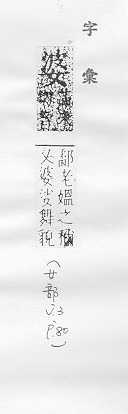 字彙
婆
鄱老媼之稱
又婆娑舞貌
(女部 V.3 P.80)